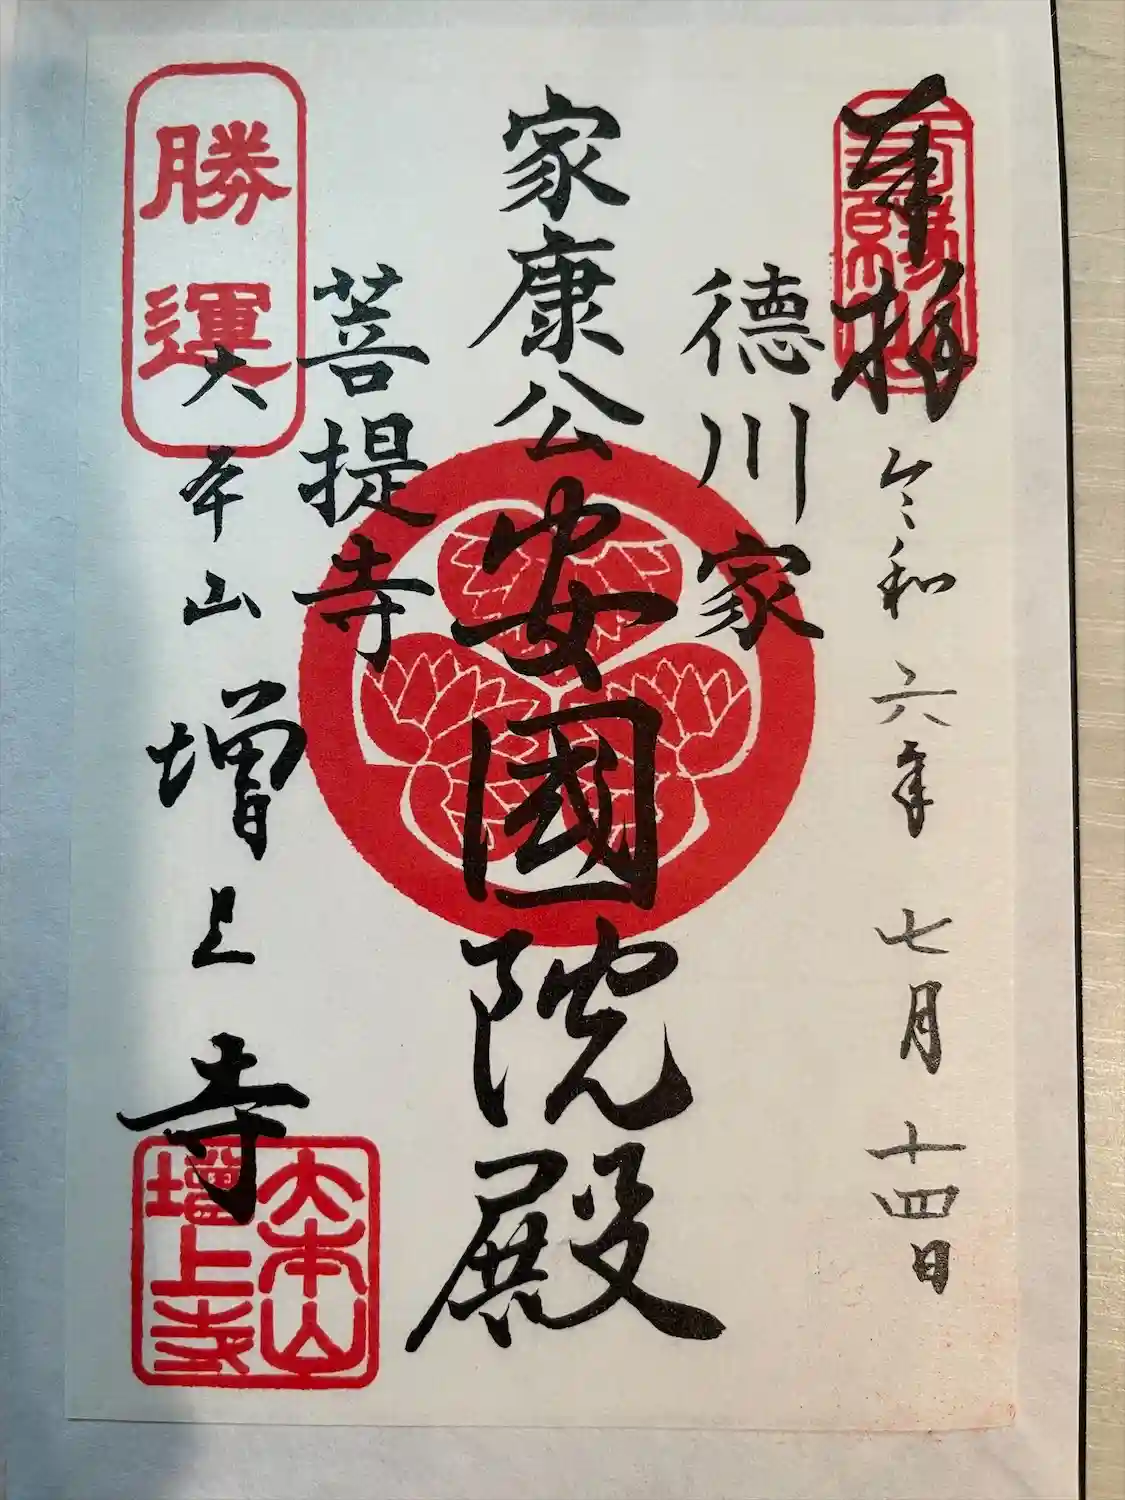 奉拝
令和六年七月十四日
德川家
家康公安國院殿
菩提寺
大本山增上寺
勝運
大本山
增上寺